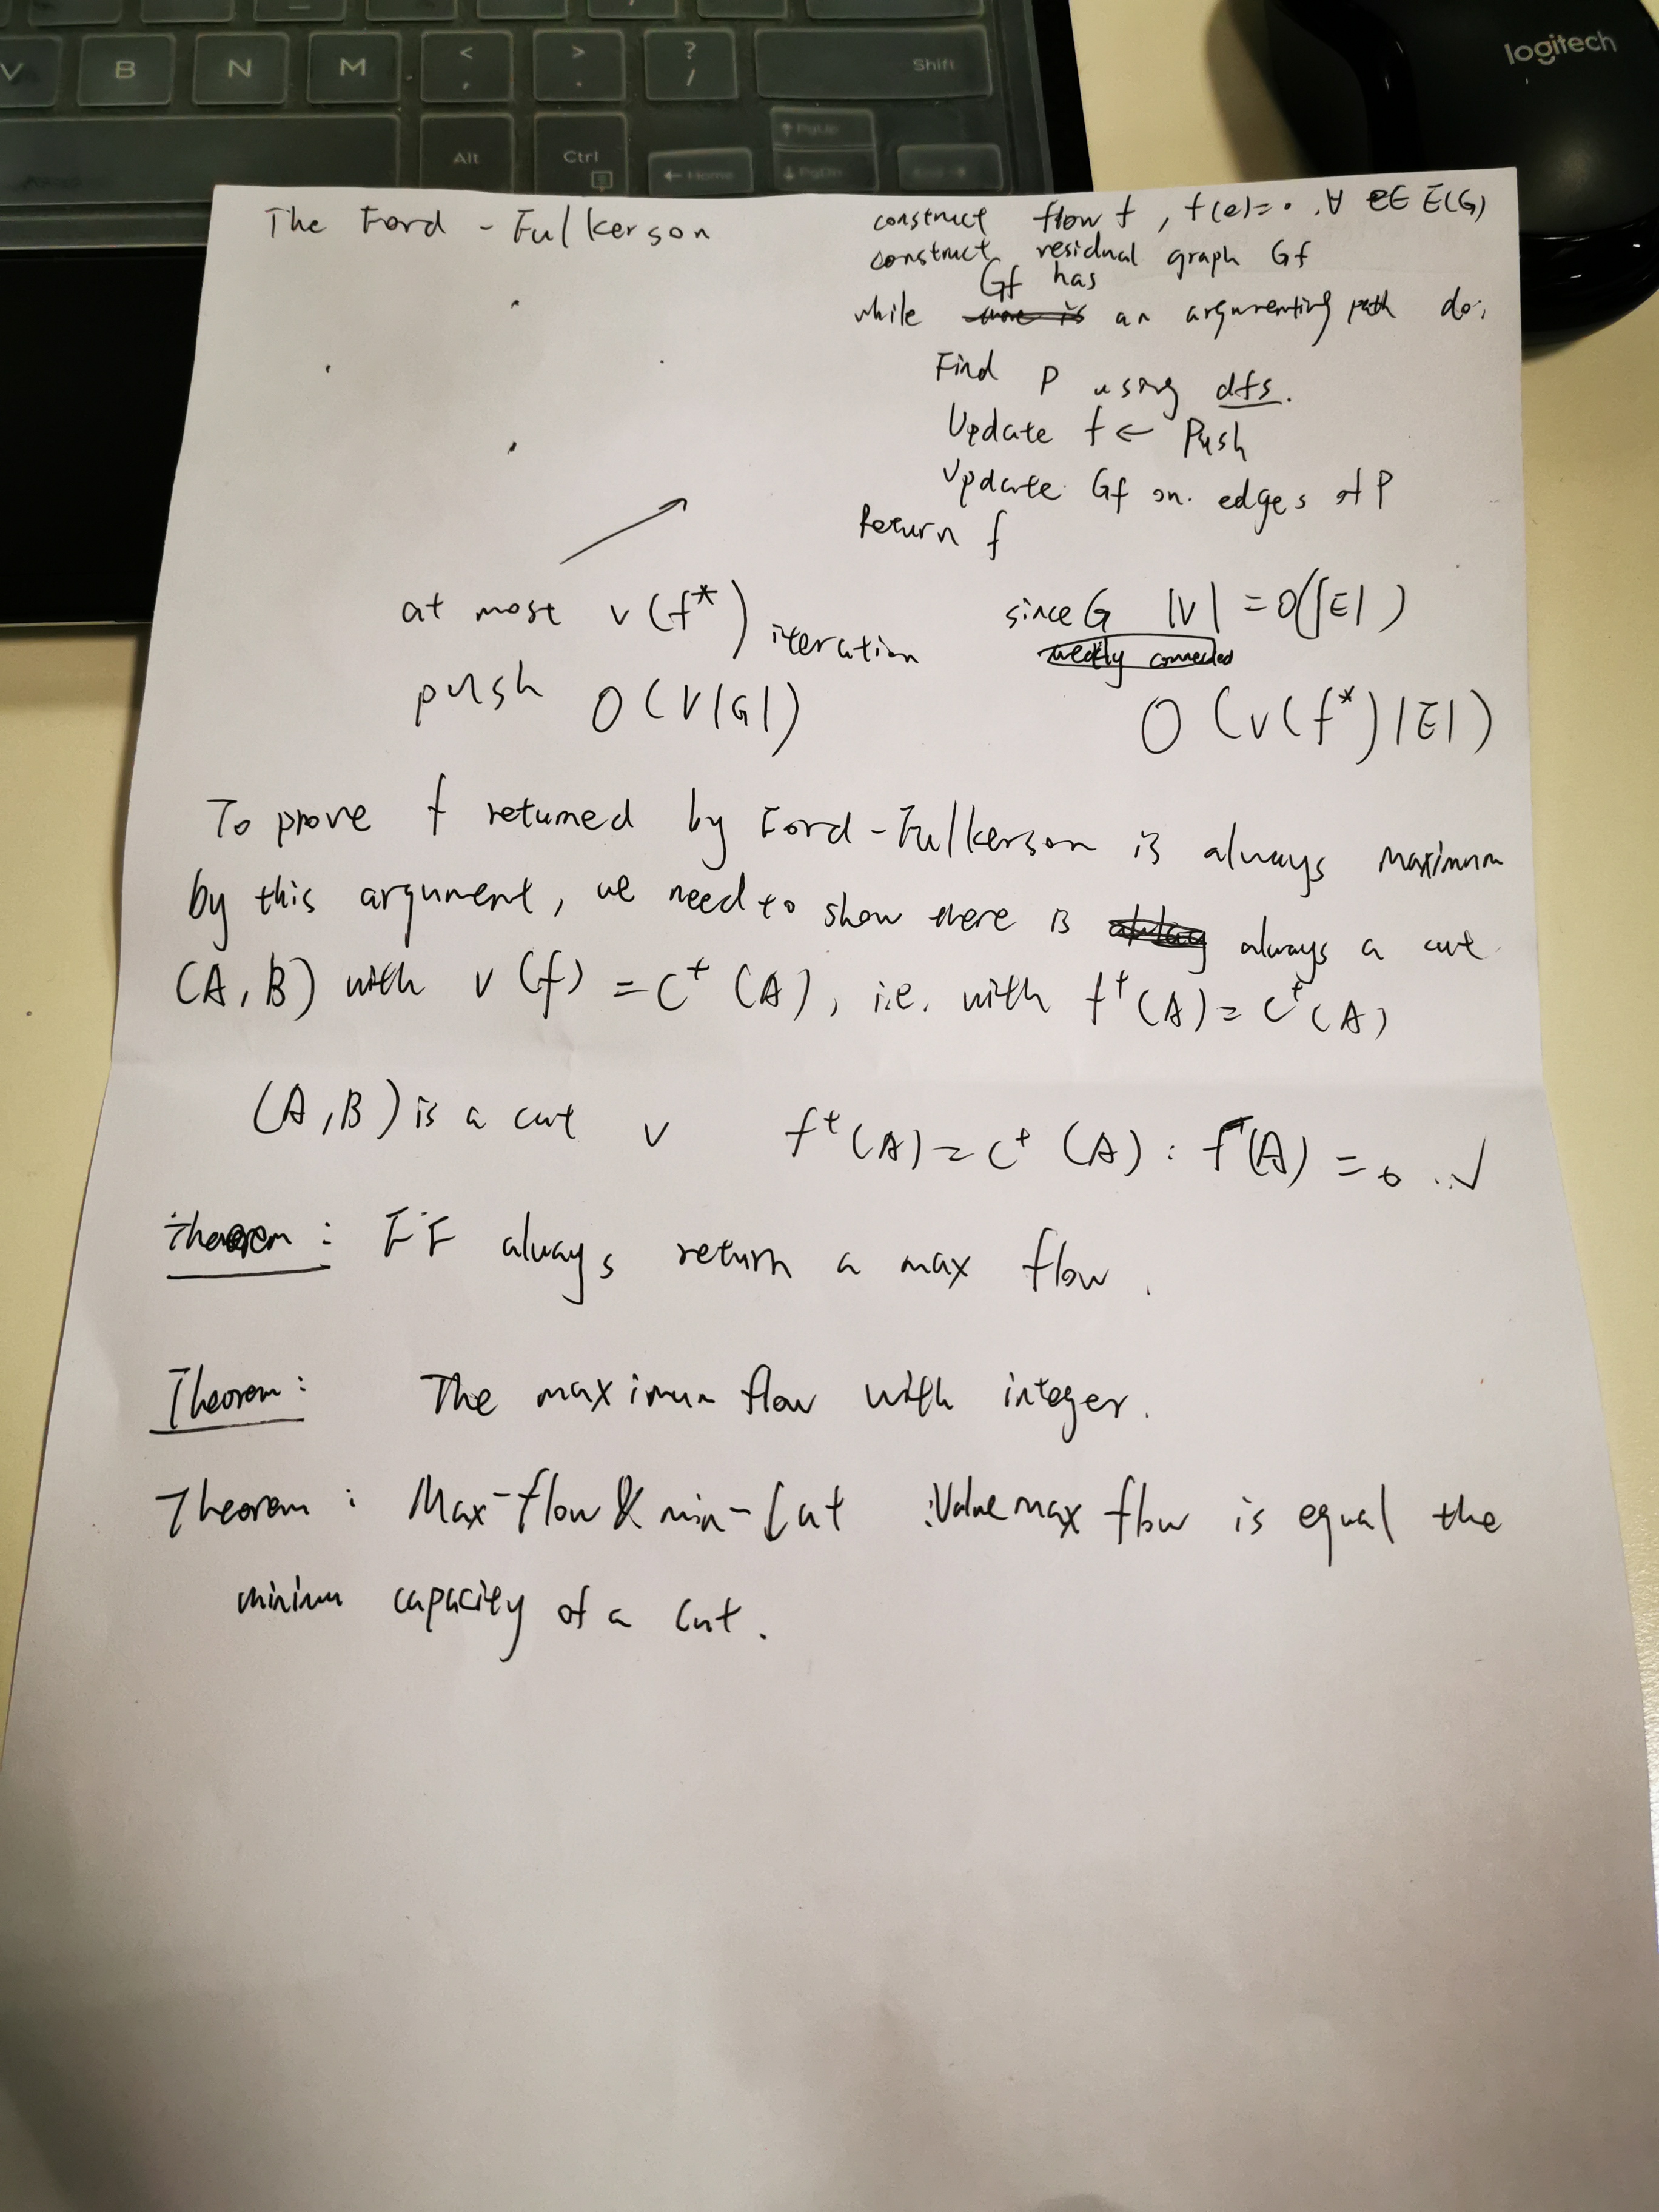 V B N M < , > . ? / Shift
Alt Ctrl Home PgUp PgDn End
logitech
The Ford - Fulkerson
construct flow f , f(e)=0 , ∀ e∈E(G)
construct residual graph Gf
Gf has
while an argumenting path do:
Find P using dfs.
Update f ← Push
Update Gf on. edges of P
Return f
at most v(f*) iteration
since G |V| = O(|E|)
weakly connected
push O(V|G|)
O(v(f*)|E|)
To prove f returned by Ford-Fulkerson is always maximum
by this argument, we need to show there is always a cut
(A,B) with v(f) = C⁺(A), i.e. with f⁺(A) = C⁺(A)
(A,B) is a cut √ f⁺(A) = C⁺(A) : f⁻(A) = 0 . √
theorem : FF always return a max flow .
Theorem : The maximum flow with integer.
Theorem : Max-flow & min-Cut : Value max flow is equal the
minimum capacity of a Cut.